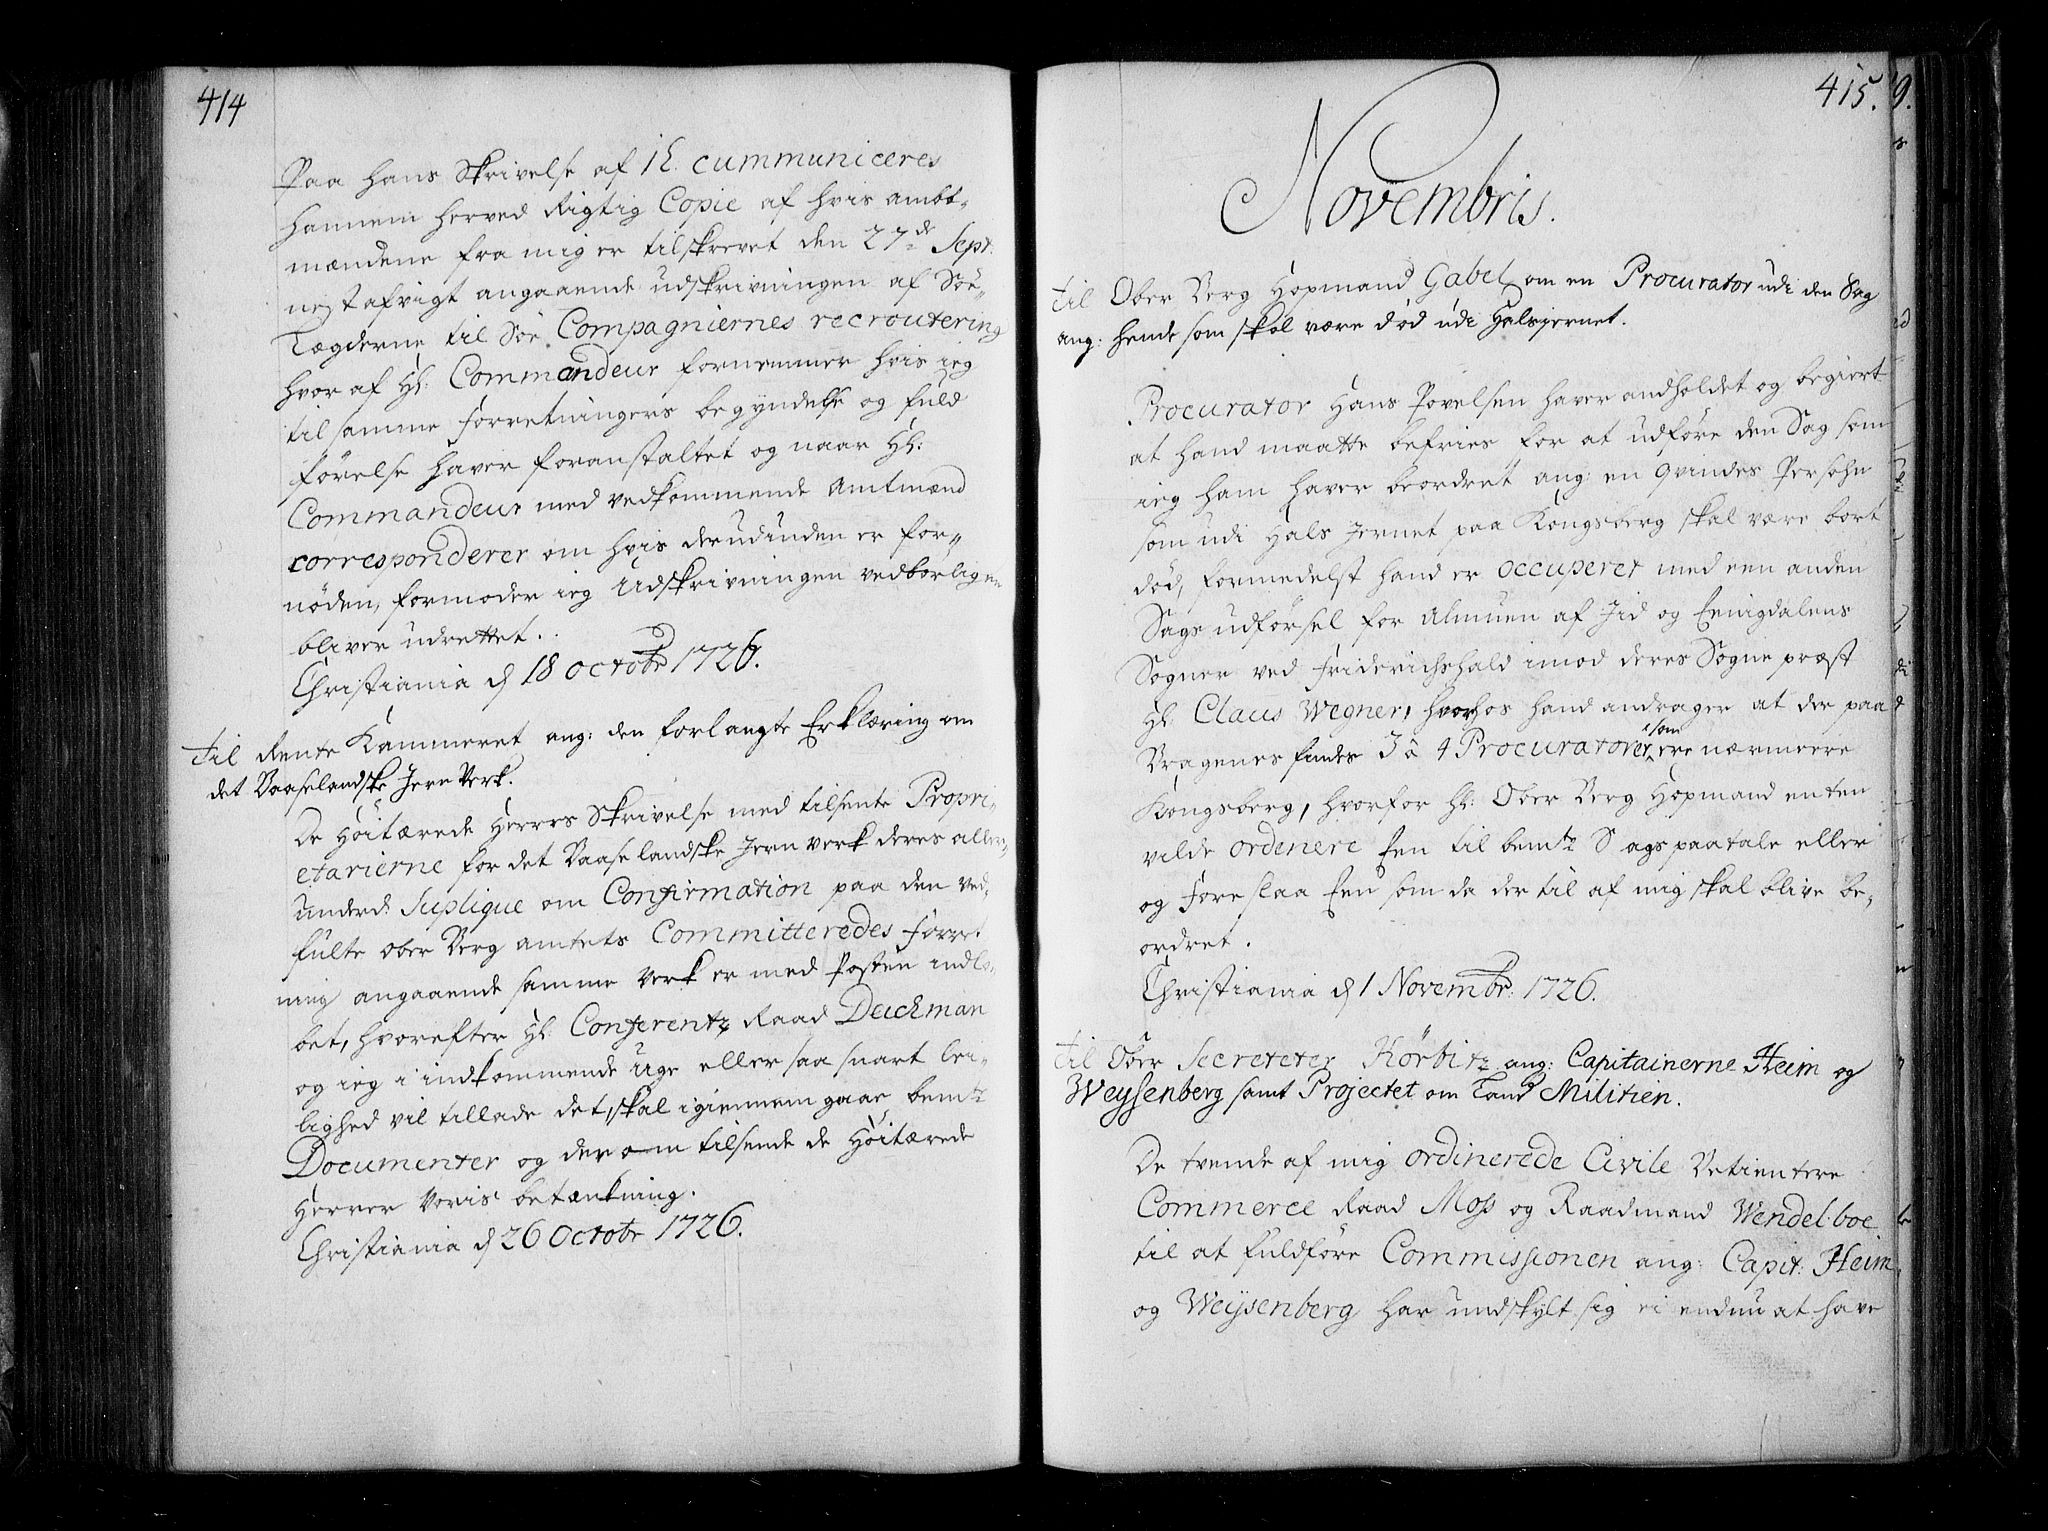 414
Paa hans Skrivelse af 1h. cummuniceres
hannem herved Rigtig Copie af hvis ambt„
mændene fra mig er tilskrevet den 27de Sept:
nest afvigt angaaende udskrivningen af Söe„
Lægderne til Söe Compagniernes recroutering
hvor af Hl: Commandeur fornemmer hvis ieg
til samme Forretningers begyndelse og fuld
förelse haver foranstaltet og naar Hl:
Commandeur med vedkommende Amtmænd
corresponderer om hvis derudinden er for„
nöden, formoder ieg Udskrivningen vedborligen
bliver udrettet.
Christiania d 18 octobr 1726.
til Rente Kammeret ang: den forlangte Erklæring om
det Baaselandske Jern Verk.
De Höitærede Herres Skrivelse med tilsente Propri„
etarierne for det Baaselandske Jern verk deres aller„
underd: Suplique om Confirmation paa den ved„
fulte ober Berg amtets Committeredes Forret
ning angaaende samme Verk er med Posten indlö„
bet, hvorefter Hl: Conferentz Raad Deichman
og ieg i indkommende Uge eller saa snart lei„
lighed vil tillade det, skal igiennemgaae bemte
Documenter og derom tilsende de Höitærede
Herrer Voris betænkning.
Christiania d 26 Octobr 1726.
415.
Novembris.
til Ober Berg Hopmand Gabel om en Procurator udi den Sag
ang: hende som skal være död udi Halsjernet.
Procurator Hans Povelsen haver andholdet og begiert
at hand maatte befries for at udföre den Sag som
ieg ham haver beordret ang: en qvindes Persohn
som udi Hals Jernet paa Kongsberg skal være bort
död, formedelst hand er occuperet med een anden
Sags udförsel for Almuen af Jid og Enigdalens
Sogner ved Friderichshald imod deres Sogne præst
Hl: Claus Wegner, hvorhos hand andrager at der paa
Bragenes findes 3 â 4 Procuratorer, som ere nærmere
Kongsberg, hvorfor Hl: Ober Berg Hopmand enten
vilde ordinere Een til bemte Sags paatale eller
og Foreslaa Een som da der til af mig skal blive be„
ordret.
Christiania d 1 Novembr: 1726.
til Ober Secreterer Körbitz ang: Capitainerne Heim og
Weysenberg samt Projectet om Land Militien.
De tvende af mig ordinerede Civile Betientere
Commerce Raad Moss og Raadmand Wendelboe
til at fuldföre Commissionen ang: Capit: Heim
og Weysenberg har undskylt sig ei endnu at have